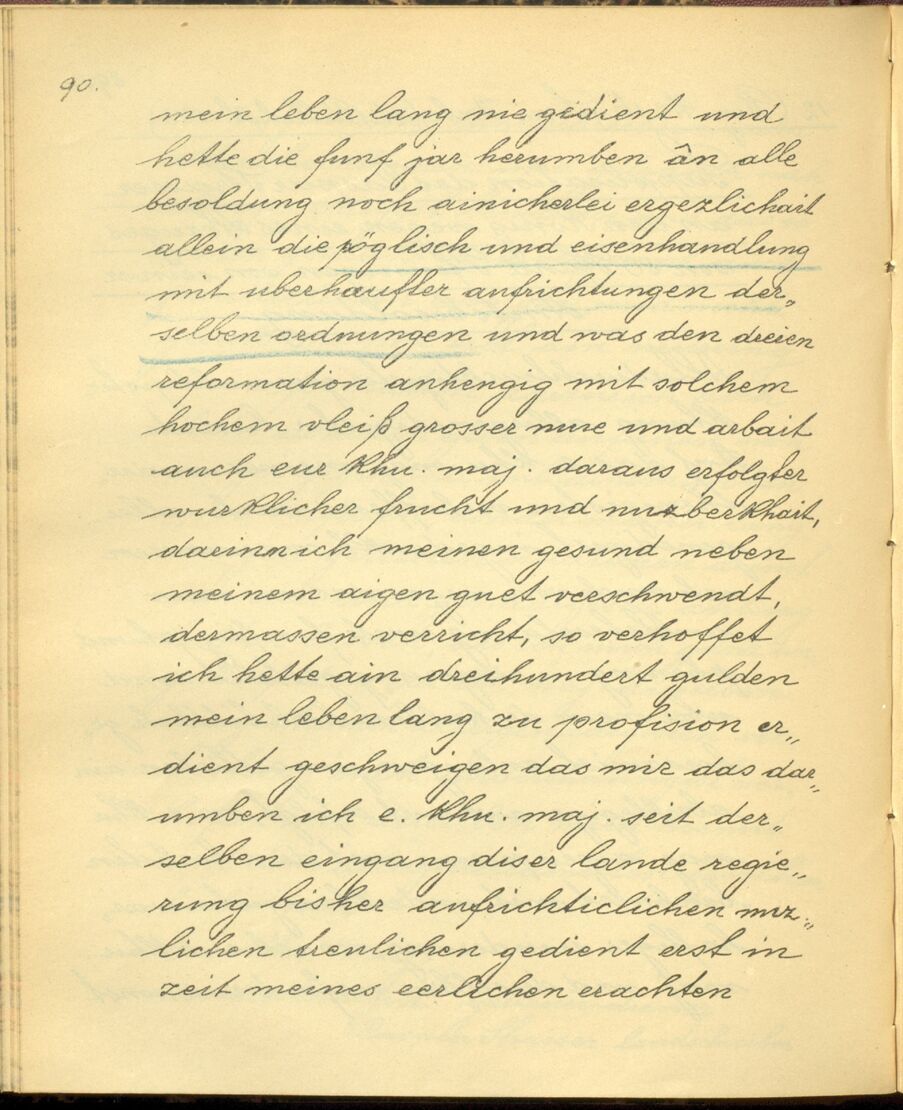 90.
mein leben lang nie gedient und
hette die funf jar herumben ân alle
besoldung noch ainicherlei ergezlichait
allein die pöglisch und eisenhandlung
mit uberhaufter aufrichtungen der„
selben ordnungen und was den dreien
reformation anhengig mit solchem
hochem vleiß grosser mue und arbait
auch eur Khu. maj. daraus erfolgter
wurklicher frucht und nuzberkhait,
daeinn ich meinen gesund neben
meinem aigen guet verschwendt,
dermassen verricht, so verhoffet
ich hette ain dreihundert gulden
mein leben lang zu profision er„
dient geschweigen das mir das dar„
umben ich e. Khu. maj. seit der„
selben eingang diser lande regie„
rung bisher aufrichticlichen nuz„
lichen treulichen gedient erst in
zeit meines eerlichen erachten